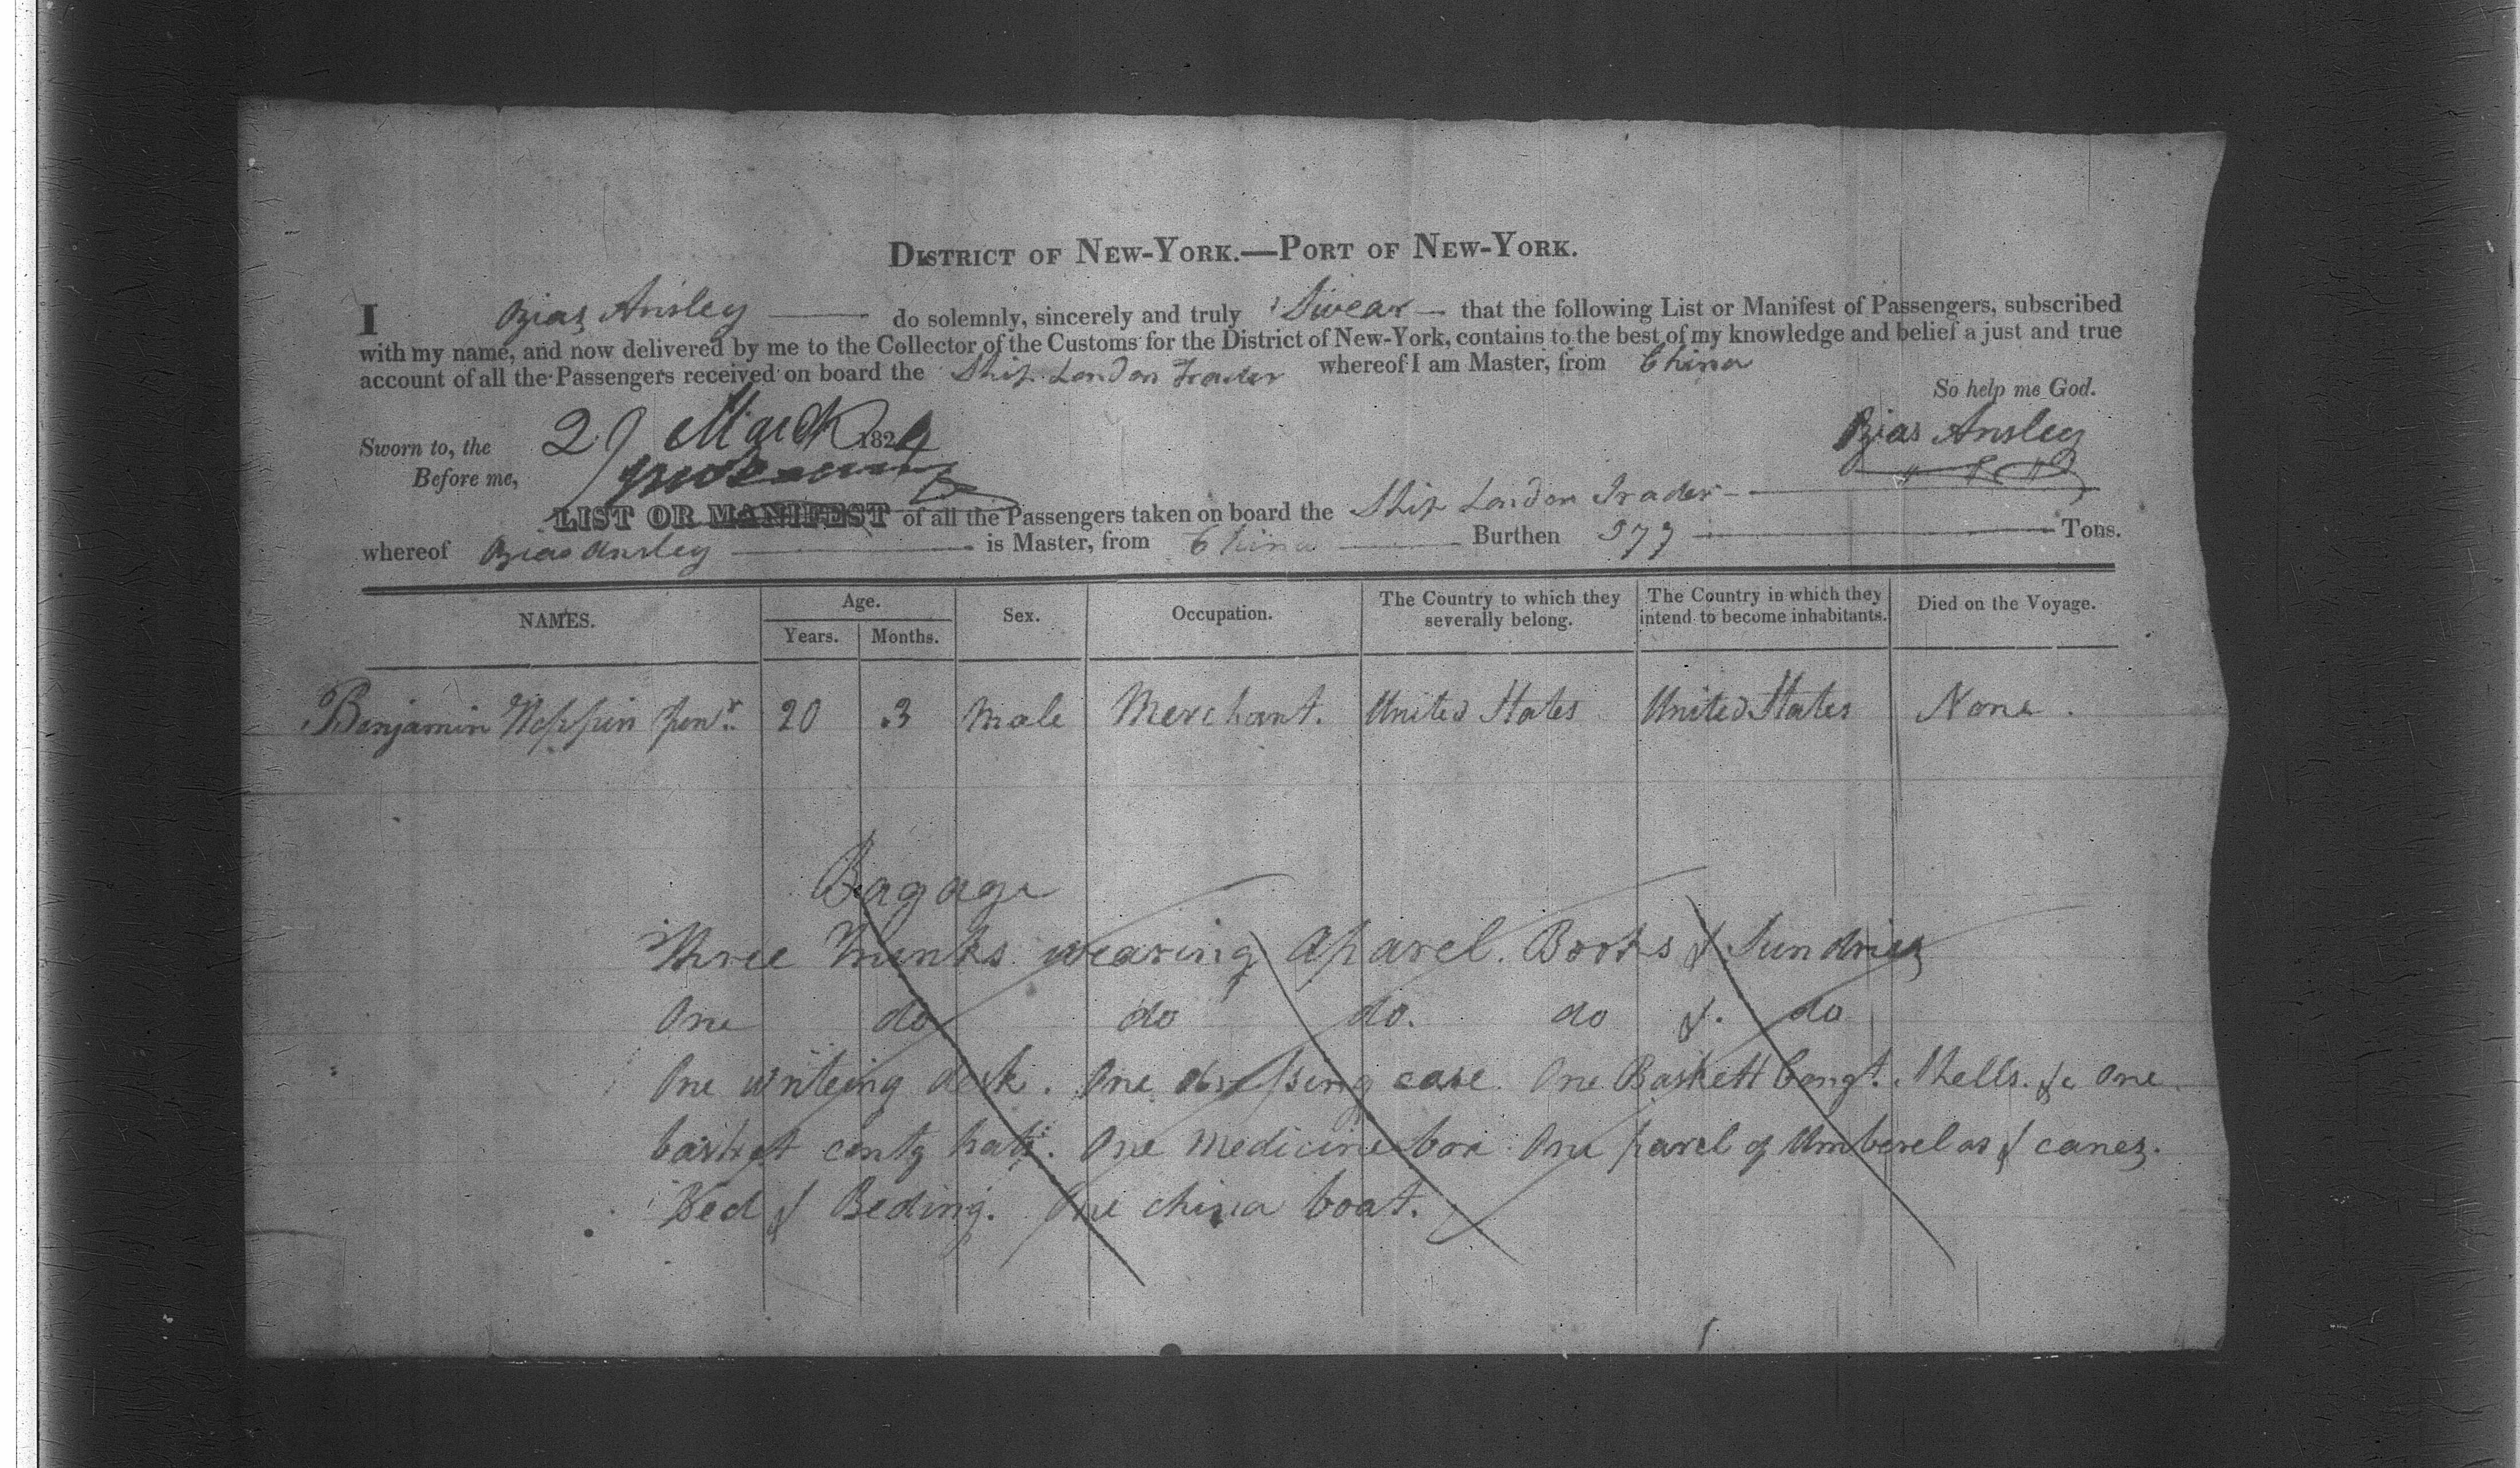 DISTRICT OF NEW-YORK.—PORT OF NEW-YORK.
I Ozias Ansley do solemnly, sincerely and truly Swear that the following List or Manifest of Passengers, subscribed
with my name, and now delivered by me to the Collector of the Customs for the District of New-York, contains to the best of my knowledge and belief a just and true
account of all the Passengers received on board the Ship London Trader whereof I am Master, from China
So help me God.
Sworn to, the 29 March 1824
Ozias Ansley
Before me,
LIST OR MANIFEST of all the Passengers taken on board the Ship London Trader
whereof Ozias Ansley is Master, from China Burthen 377 Tons.
NAMES. Age. Years. Months. Sex. Occupation. The Country to which they severally belong. The Country in which they intend to become inhabitants. Died on the Voyage.
Benjamin 20 3 Male Merchant. United States United States None.
Bagage
Three Trunks wearing Aparel. Books & Sundries
One do do do. do &. do
One writeing desk. One dressing case. One Baskett Congt. Shells. &c One
basket contg hats. One Medicine box One parel of Umberelas & canes.
Bed & Beding. One china boat.